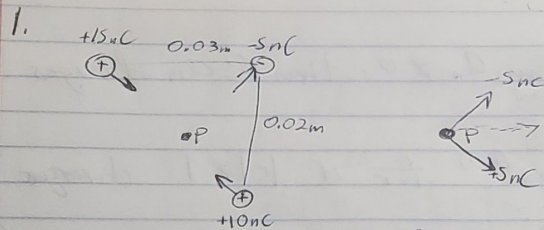 1.
+15nC
0.03m
-5nC
0.02m
P
+10nC
-5nC
P
+5nC